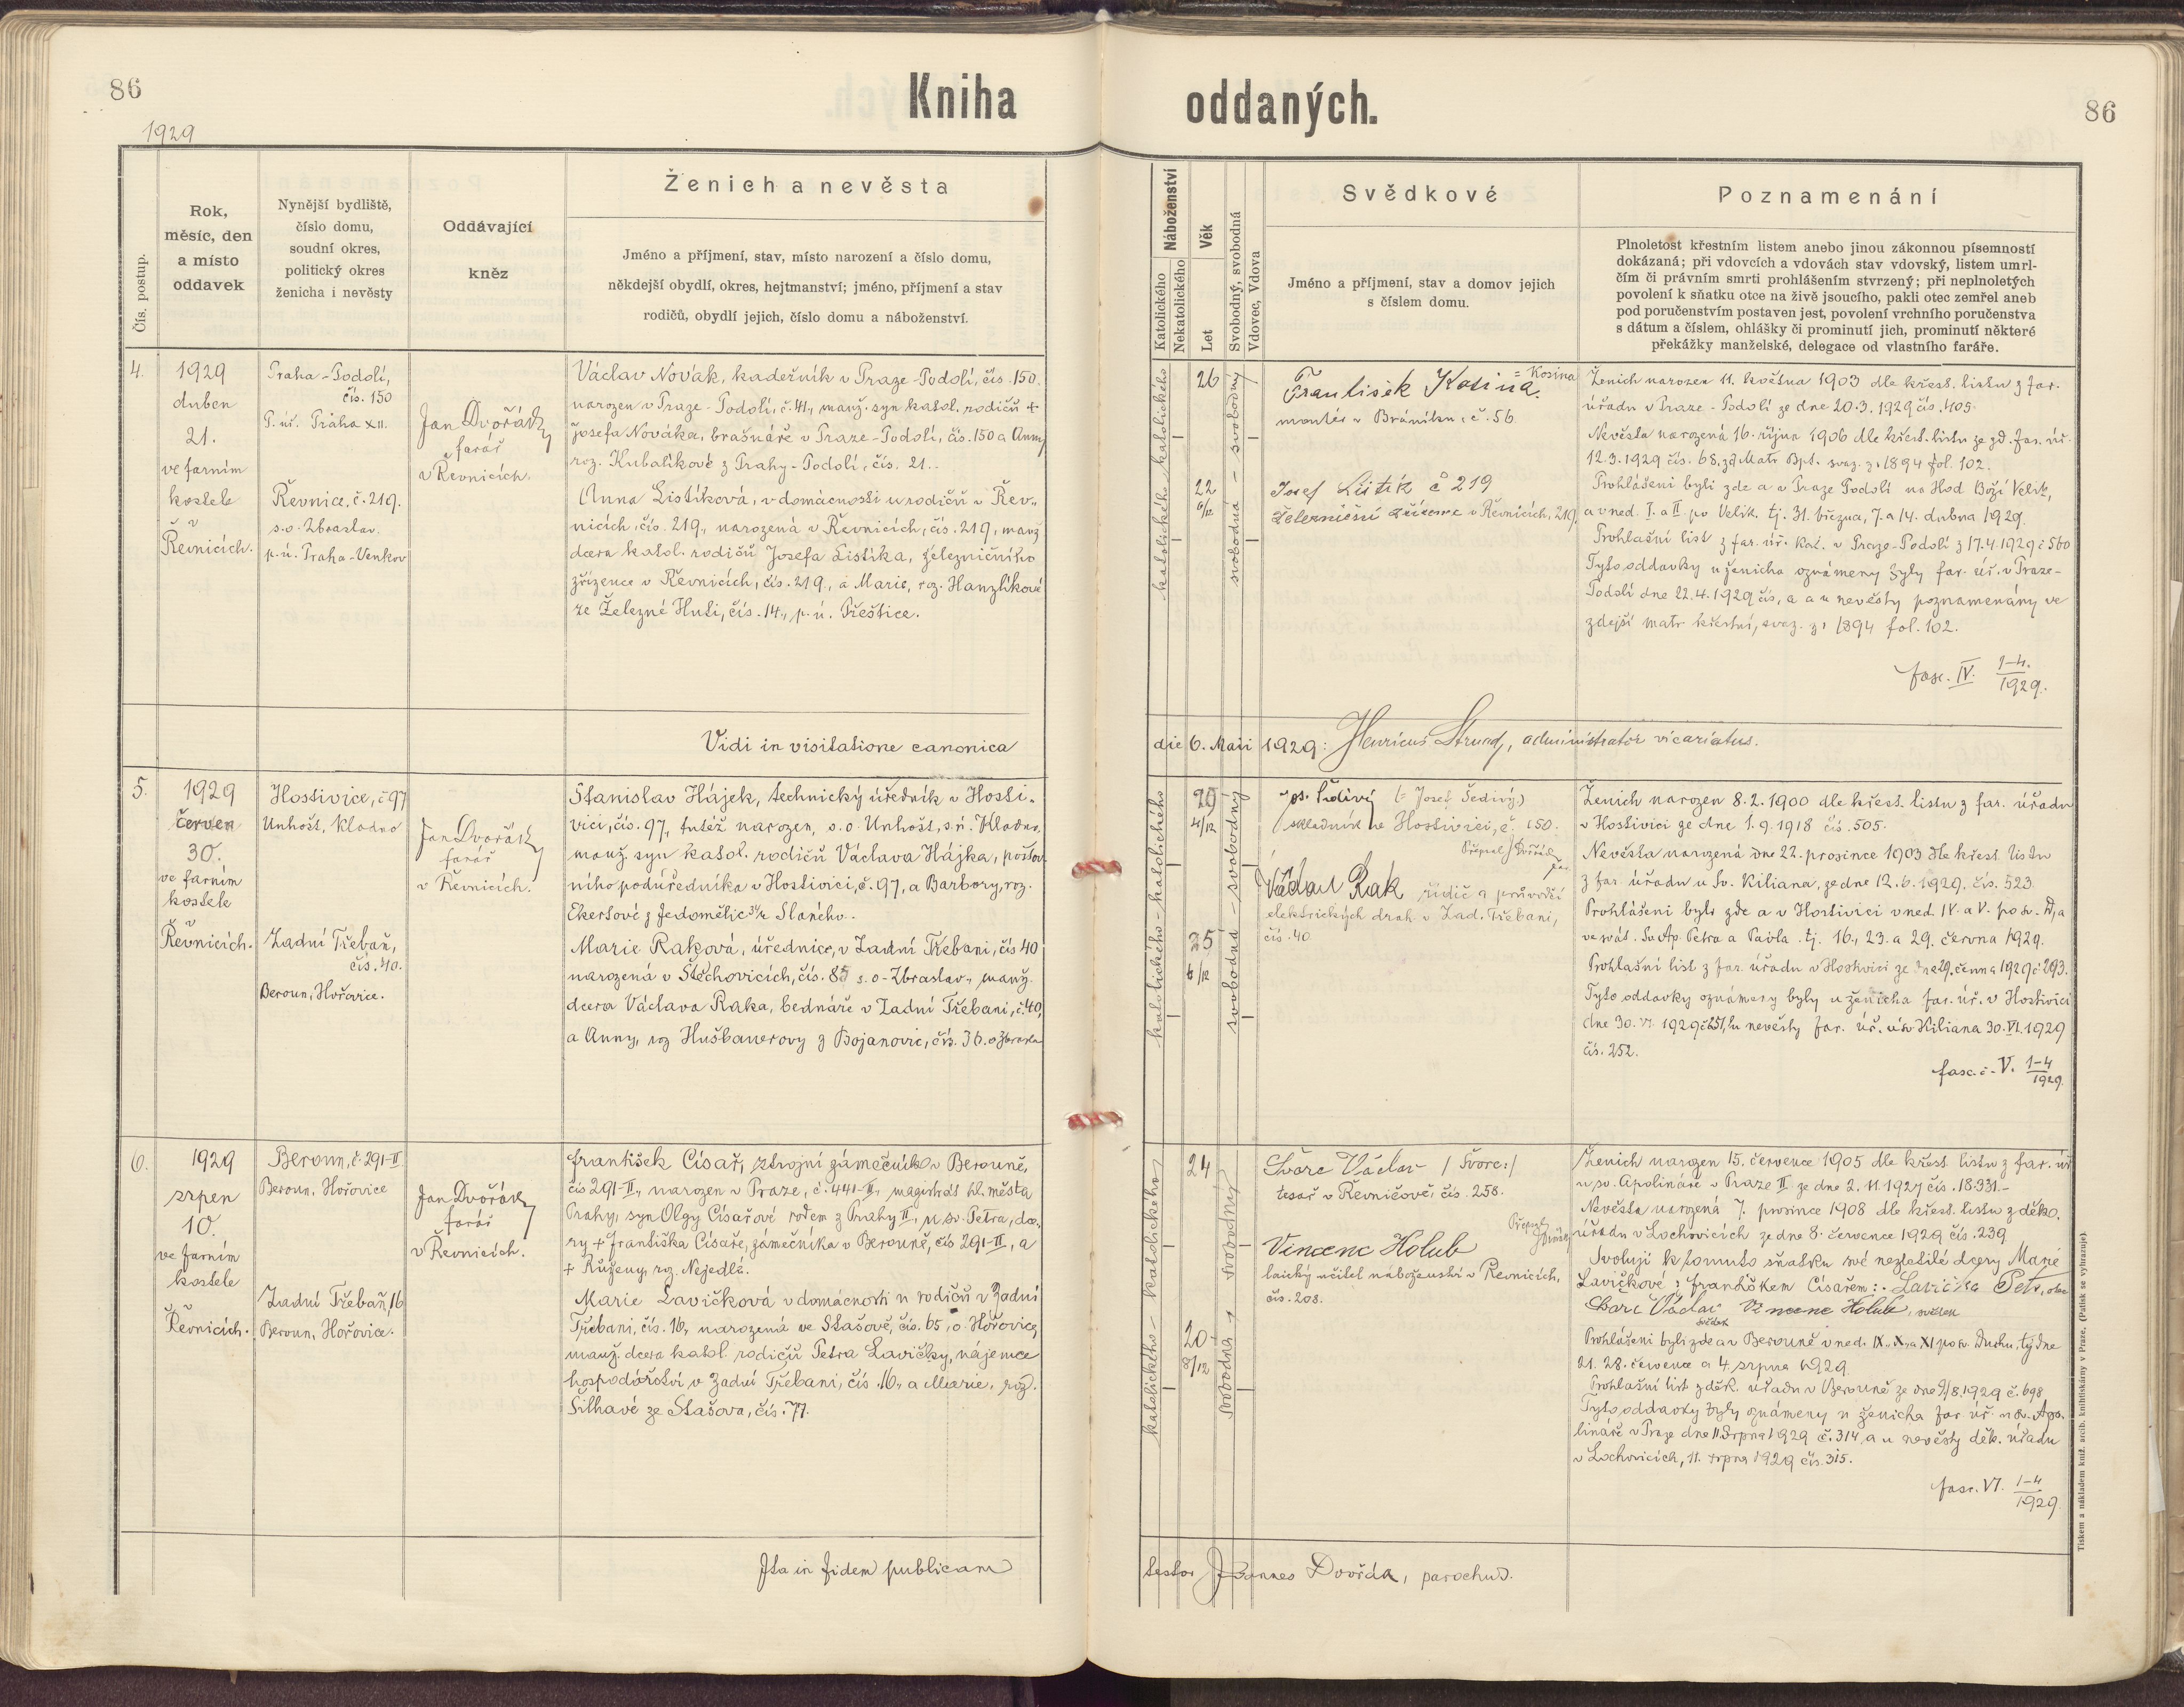 86
Kniha oddaných.
86
1929
Čís. postup.
Rok,
měsíc, den
a místo
oddavek
Nynější bydliště,
číslo domu,
soudní okres,
politický okres
ženicha i nevěsty
Oddávající
kněz
Ženich a nevěsta
Jméno a příjmení, stav, místo narození a číslo domu,
někdejší obydlí, okres, hejtmanství; jméno, příjmení a stav
rodičů, obydlí jejich, číslo domu a náboženství.
Náboženství
Katolického
Nekatolického
Věk
Let
Svobodný, svobodná
Vdovec, Vdova
Svědkové
Jméno a příjmení, stav a domov jejich
s číslem domu.
Poznamenání
Plnoletost křestním listem anebo jinou zákonnou písemností
dokázaná; při vdovcích a vdovách stav vdovský, listem umrl-
čím či právním smrti prohlášením stvrzený; při neplnoletých
povolení k sňatku otce na živě jsoucího, pakli otec zemřel aneb
pod poručenstvím postaven jest, povolení vrchního poručenstva
s dátum a číslem, ohlášky či prominutí jich, prominutí některé
překážky manželské, delegace od vlastního faráře.
4.
1929
duben
21.
ve farním
kostele
v
Řevnicích.
Praha-Podolí,
čís. 150
P. úř. Praha XII.
Řevnice, č. 219.
s.o. Zbraslav.
p.ú. Praha-Venkov
Jan Dvořák
farář
v Řevnicích.
Václav Novák, kadeřník v Praze-Podolí, čís. 150.
narozen v Praze-Podolí, č. 41, manž. syn katol. rodičů +
Josefa Nováka, brašnáře v Praze-Podolí, čís. 150 a Anny
roz. Kubalíkové z Prahy-Podolí, čís. 21..
Anna Listíková, v domácnosti u rodičů v Řev-
nicích, čís. 219., narozená v Řevnicích, čís. 219, manž
dcera katol. rodičů Josefa Listíka, železničního
zřízence v Řevnicích, čís. 219., a Marie, roz. Hanzlíkové
ze Železné Huti, čís. 14., p. ú. Přeštice.
katolického katolického
26
22
6/12
svobodná - svobodný
František Kosina = Kosina
montér v Bráníku, č. 56
Josef Listík č 219
Železniční zřízenec v Řevnicích, 219.
Ženich narozen 11. května 1903 dle křest. listu z far.
úřadu v Praze-Podolí ze dne 20.3.1929 čís. 405.
Nevěsta narozená 16. října 1906 dle křest. listu ze zd. far. úř.
12.3.1929 čís. 68, zd Matr Bpt. svaz. z. 1894 fol. 102.
Prohlášeni byli zde a v Praze Podolí na Hod Boží Velik,
a v ned. I. a II. po Velik. tj. 31. března, 7. a 14. dubna 1929.
Prohlašní list z far. úř. kat. v Praze-Podolí z 17.4.1929 č 560
Tyto oddavky u ženicha oznámeny byly far. úř. v Praze-
Podolí dne 22.4.1929 čís, a a u nevěsty poznamenány ve
zdejší matr křestní, svaz. z. 1894 fol. 102.
fasc. IV. 1-4. / 1929.
Vidi in visitatione canonica
die 6. Maii 1929: Henricus Strnad, administrator vicariatus.
5.
1929
červen
30.
ve farním
kostele
v
Řevnicích.
Hostivice, č 97
Unhošť, Kladno
Zadní Třebaň,
čís. 40.
Beroun, Hořovice.
Jan Dvořák
farář
v Řevnicích.
Stanislav Hájek, technický úředník v Hosti-
vici, čís. 97, tutéž narozen, s.o. Unhošť, s.ú. Kladno,
manž. syn katol. rodičů Václava Hájka, poštov
ního podúředníka v Hostivici, č. 97, a Barbory, roz.
Ekertové z Jedomělic Slaného.
Marie Raková, úřednice, v Zadní Třebani, čís 40
narozená v Štěchovicích, čís. 85 s.o-Zbraslav, manž.
dcera Václava Raka, bednáře v Zadní Třebani, č. 40,
a Anny, roz Hušbauerovy z Bojanovic, čís. 36. o Zbraslav
katolického - katolického
29
4/12
25
6/12
svobodná - svobodný
Jos. Šedivý (= Josef Šedivý.)
skladník ve Hostivici, č. 150.
Přepsal J Dvořák
Václav Rak řidič a průvodčí
elektrických drah v Zad. Třebani,
čís. 40
Ženich narozen 8.2.1900 dle křest. listu z far. úřadu
v Hostivici ze dne 1.9.1918 čís. 505.
Nevěsta narozená dne 22. prosince 1903 dle křest. listu
z far. úřadu u Sv. Kiliana, ze dne 12.6.1929, čís. 523
Prohlášeni byli zde a v Hostivici v ned. IV. a V. po sv. D, a
ve svát. Sv. Ap. Petra a Pavla. tj. 16., 23. a 29. června 1929.
Prohlašní list z far. úřadu v Hostivici ze dne 29. června 1929 č 293.
Tyto oddavky oznámeny byly u ženicha far. úř. v Hostivici
dne 30. VI. 1929 č 251, u nevěsty far. úř. u sv Kiliana 30. VI. 1929
čís. 252.
fasc. č. V. 1-4 / 1929.
6.
1929
srpen
10.
ve farním
kostele
v
Řevnicích.
Beroun, č. 291-II
Beroun, Hořovice
Zadní Třebaň, 16
Beroun, Hořovice.
Jan Dvořák
farář
v Řevnicích.
František Císař, strojní zámečník v Berouně,
čís 291-II., narozen v Praze, č. 441-II., magistrát hl. města
Prahy, syn Olgy Císařové rodem z Prahy II, u sv. Petra, dce-
ry + Františka Císaře, zámečníka v Berouně, čís 291-II, a
+ Růženy, roz. Nejedlé.
Marie Lavičková v domácnosti u rodičů v Zadní
Třebani, čís. 16., narozená ve Stašově, čís. 65, o. Hořovice,
manž. dcera katol. rodičů Petra Lavičky, nájemce
hospodářství v Zadní Třebani, čís. 16, a Marie, roz.
Šilhavé ze Stašova, čís. 77.
katolického - katolického
24
20
8/12
svobodná + svobodný
Švarc Václav / Švorc:/
tesař v Řevničově, čís. 258.
Přepsal J Dvořák
Vincenc Holub
laický učitel náboženství v Řevnicích,
čís. 208.
Ženich narozen 15. července 1905 dle křest. listu z far. úř
u sv. Apolináře v Praze II ze dne 2.11.1927 čís. 18.331.-
Nevěsta narozená 7. prosince 1908 dle křest. listu z děk.
úřadu v Lochovicích ze dne 8. července 1929 čís. 239
Svoluji k tomuto sňatku své nezletilé dcery Marie
Lavičkové s Františkem Císařem: Lavička Petr, otec
Švarc Václav Vincenc Holub, svědek
svědek
Prohlášeni byli zde a v Berouně v ned. IX., X., a XI po sv. Duchu, tj dne
21. 28. července a 4. srpna 1929
Prohlašní list z děk. úřadu v Berouně ze dne 9/8.1929 č. 698
Tyto oddavky byly oznámeny u ženicha far. úř. u sv. Apo-
lináře v Praze dne 11. srpna 1929 č. 314, a u nevěsty děk. úřadu
v Lochovicích, 11. srpna 1929 čís. 315.
fasc. VI. 1-4 / 1929
Ita in fidem publicam
testor Joannes Dvořák, parochus.
Tiskem a nákladem kníž. arcib. knihtiskárny v Praze. (Patisk se vyhrazuje)